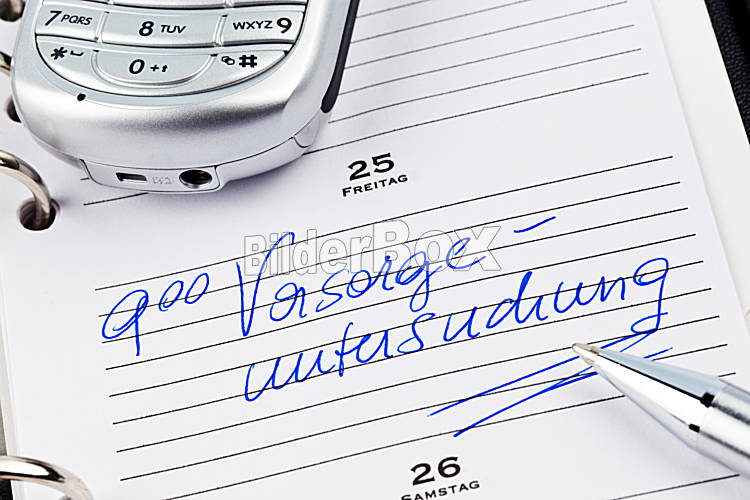 7 PQRS 8 TUV WXYZ 9
* 0 + #
25
FREITAG
BilderBox
9 00 Vorsorge -
untersuchung
26
SAMSTAG